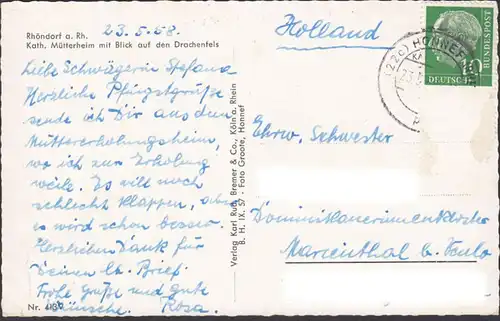 23.5.58.
Rhöndorf a. Rh.
Kath. Mütterheim mit Blick auf den Drachenfels
Liebe Schwägerin Stefana
Herzliche Pfingstgrüße
sende ich Dir aus dem
Müttererholungsheim,
wo ich zur Erholung
weile. Es will noch
schlecht klappen, aber
es wird schon besser.
Herzlichen Dank für
Deinen lb. Brief.
Frohe Grüße und gute
Wünsche. Rosa.
Nr. 4139
Verlag Karl Rud. Bremer & Co., Köln a. Rhein
B. H. IX. 57 · Foto Groote, Honnef
Holland
(22c) HONNEF
23.5
DEUTSCHE
BUNDESPOST
10
Ehrw. Schwester
Dominikanerinnenkloster
Marienthal b. Venlo